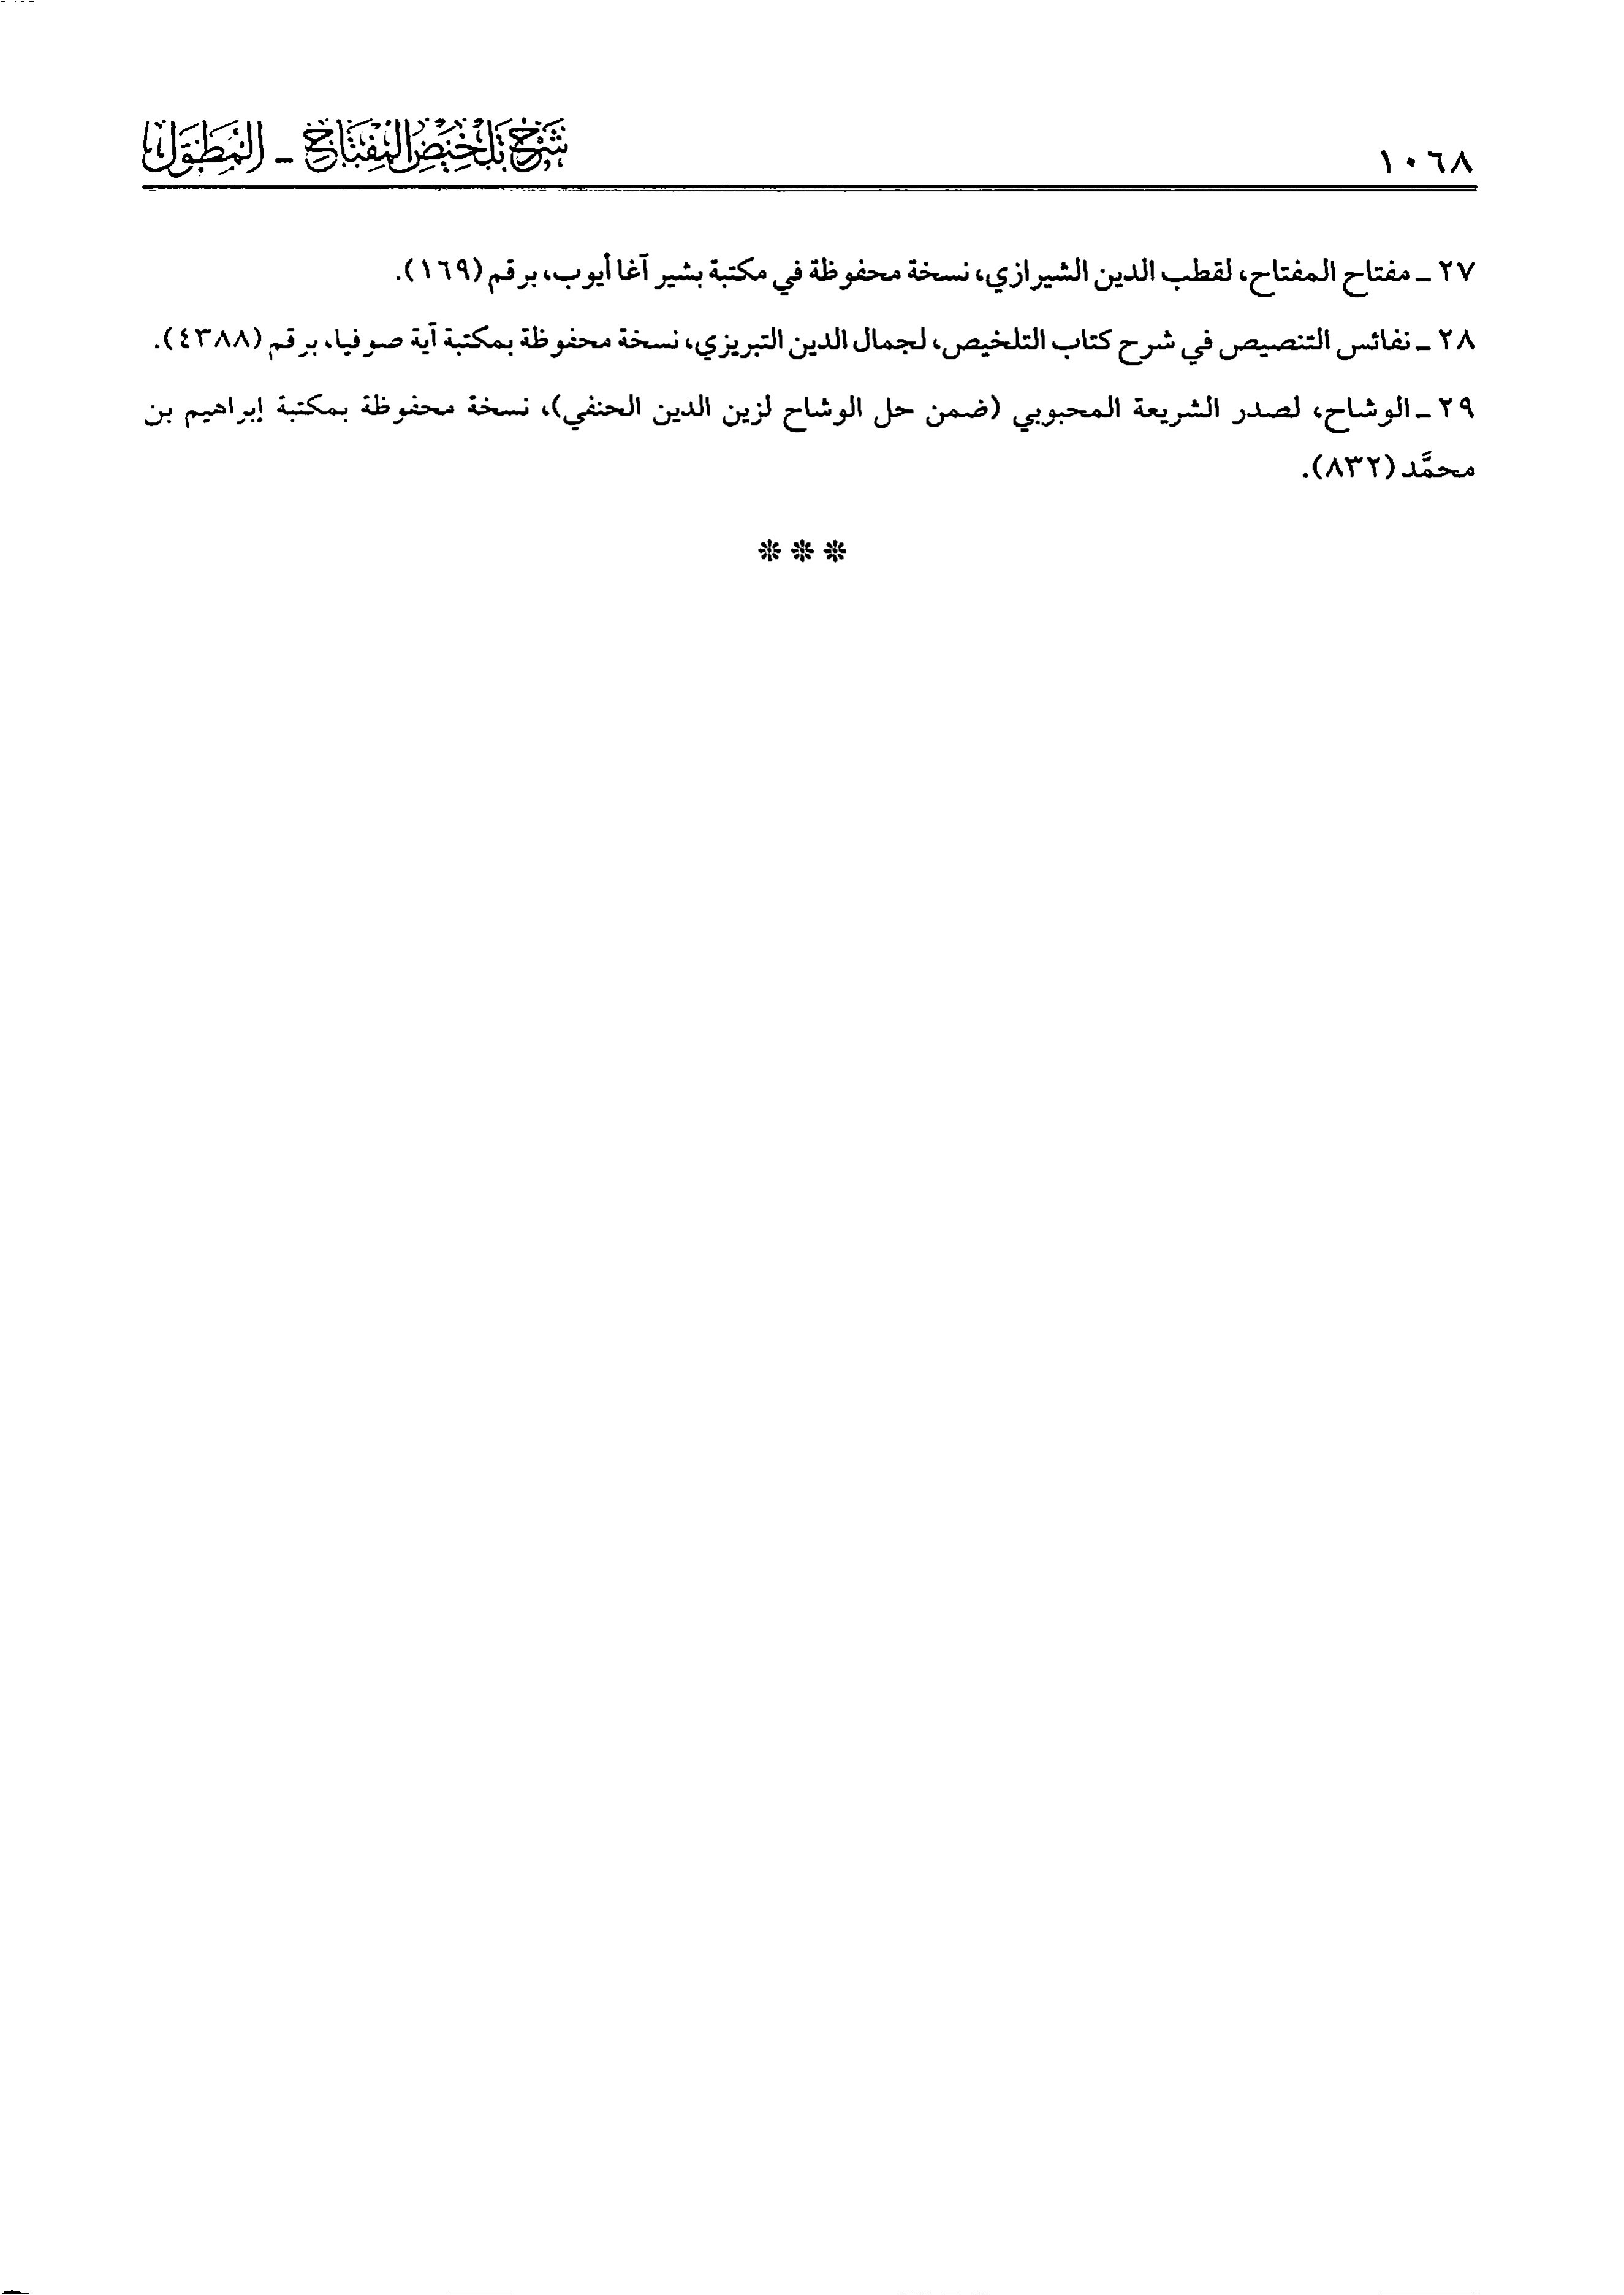 ١٠٦٨
شرح تلخيص المفتاح - المطول
٢٧ - مفتاح المفتاح، لقطب الدين الشيرازي، نسخة محفوظة في مكتبة بشير آغا أيوب، برقم (١٦٩).
٢٨ - نفائس التنصيص في شرح كتاب التلخيص، لجمال الدين التبريزي، نسخة محفوظة بمكتبة آية صوفيا، برقم (٤٣٨٨).
٢٩ - الوشاح، لصدر الشريعة المحبوبي (ضمن حل الوشاح لزين الدين الحنفي)، نسخة محفوظة بمكتبة إبراهيم بن
محمَّد (٨٣٢).
***